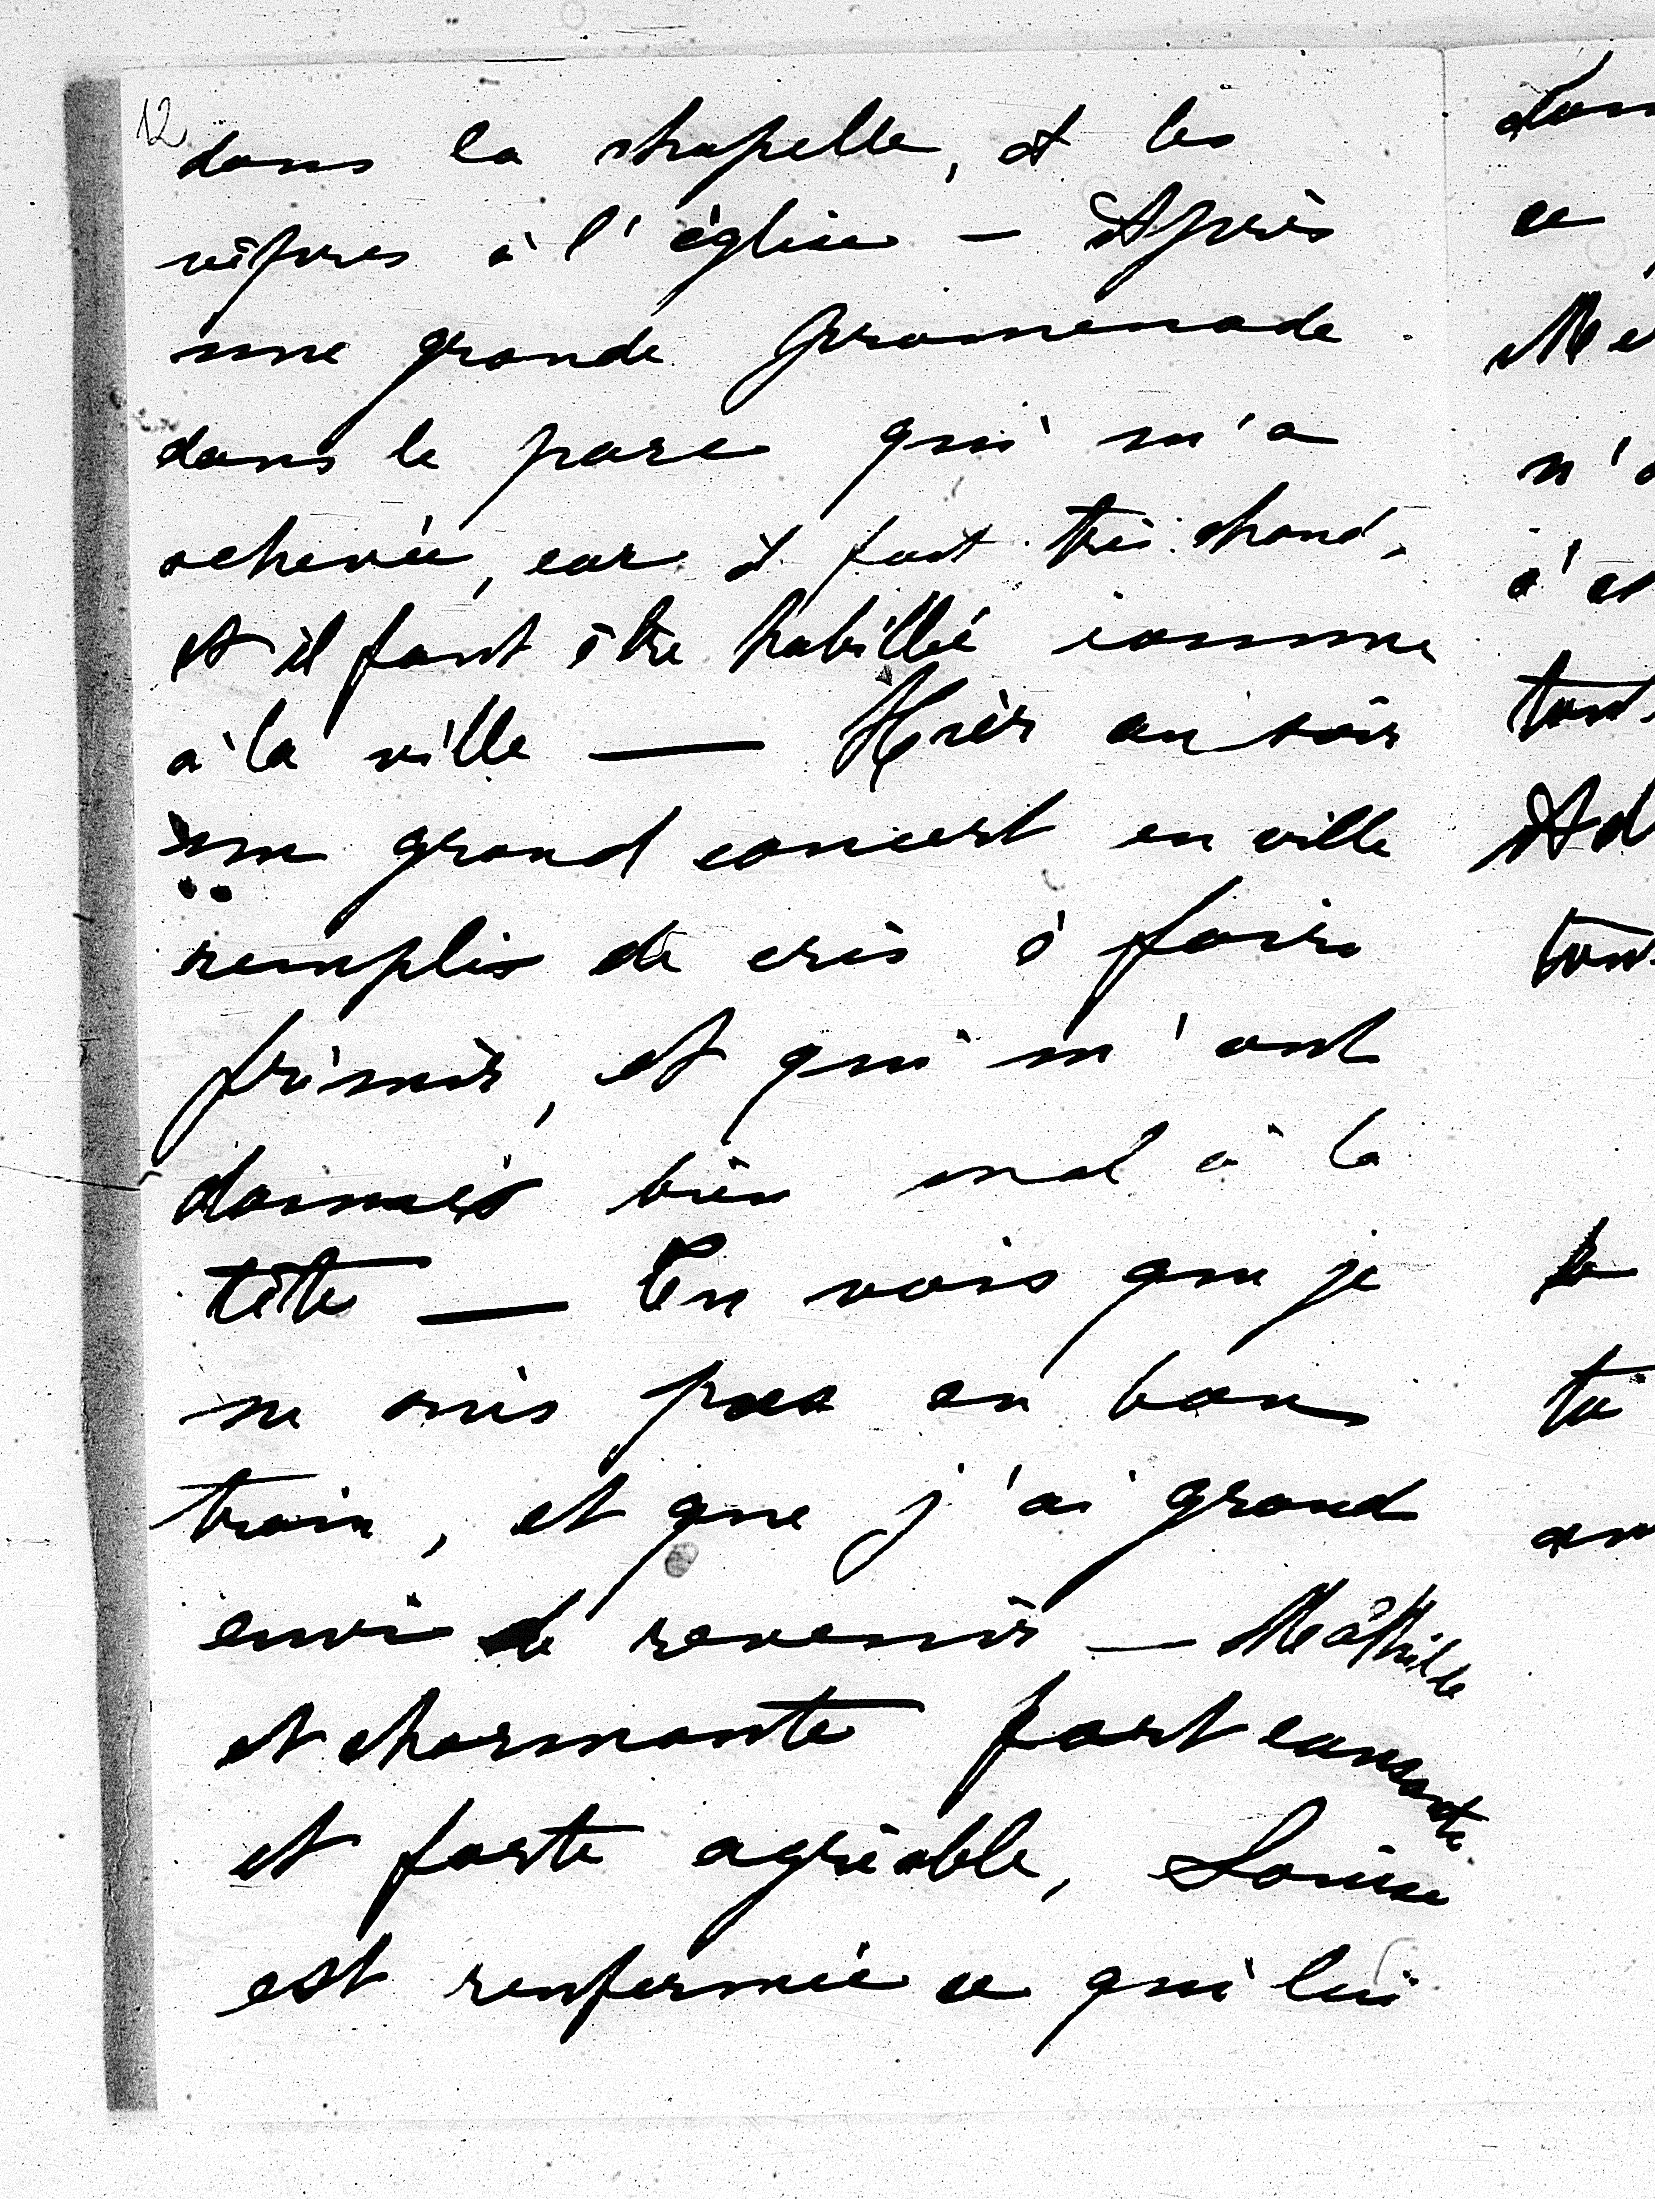 12
dans la chapelle, et les
vêpres à l'église — Après
une grande promenade
dans le parc qui m'a
achevée, car il fait très chaud,
et il faut être habillé comme
à la ville — Hier au soir
un grand concert en ville
remplis de cris à faire
frémir, et qui m'ont
donnés bien mal à la
tête — Tu vois que je
ne suis pas en bon
train, et que j'ai grand
envie de revenir — Mathilde
et charmante fort causante
et forte agréable, Louise
est renfermée ce qui lui
ce
n'a
tout
Ad